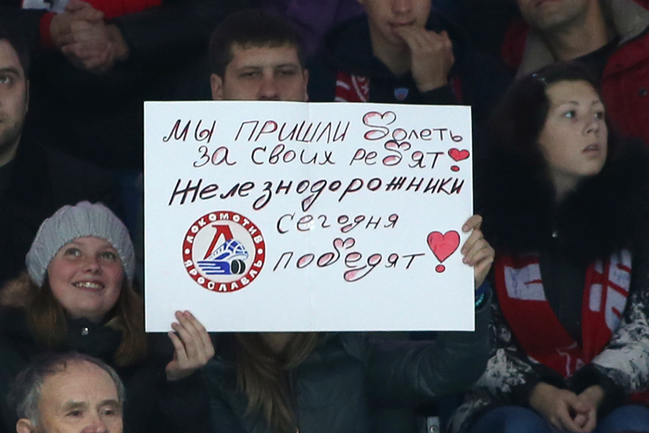 Мы пришли болеть
за своих ребят!
Железнодорожники
сегодня
победят!
ЛОКОМОТИВ
ЯРОСЛАВЛЬ